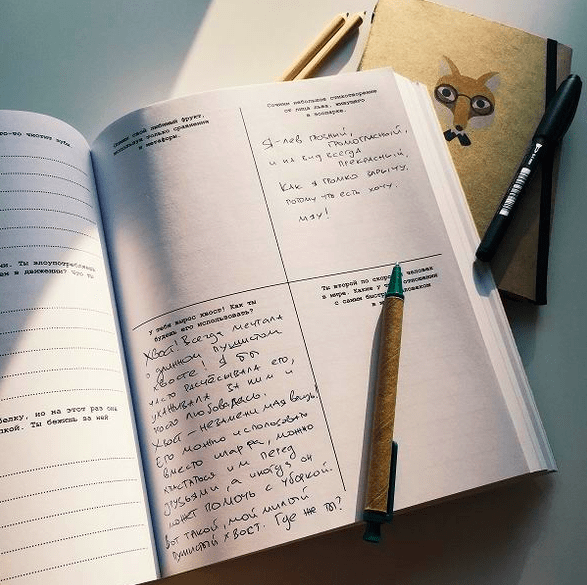 чистит зубы
Ты злоупотребляешь
в движении?
белку, но на этот раз она
Ты бежишь за ней
Опиши свой любимый фрукт,
используя только сравнения
и метафоры.
Сочини небольшое стихотворение
от лица льва, живущего
в зоопарке.
Я-лев поэзий,
громогласный,
и на вид всегда
прекрасный,
Как я громко зарычу,
потому что есть хочу.
мяу!
У тебя вырос хвост! Как ты
будешь его использовать?
Хвост! Всегда мечтала
о длинном пушистом
хвосте! Я бы
часто расчёсывала его,
ухаживала за ним и
просто любовалась.
Хвост - незаменимая вещь!
Его можно использовать
вместо шарфа, можно
хвастаться им перед
друзьями, а иногда он
может помочь с уборкой.
Вот такой, мой милый
пушистый хвост. Где же ты?
Ты второй по скорости человек
в мире. Какие у отношения
с самым человеком
в